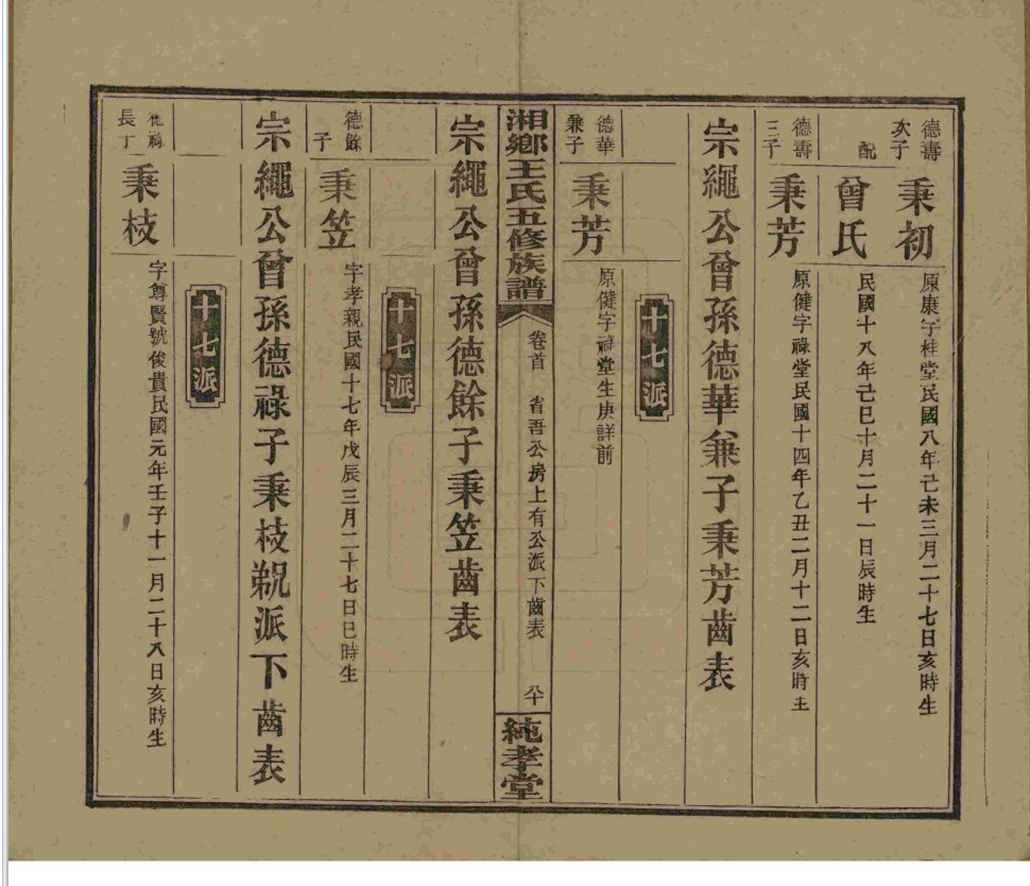 德壽
次子
秉初
原康字桂堂民國八年己未三月二十七日亥時生
配
曾氏
民國十八年己巳十月二十一日辰時生
德壽
三子
秉芳
原健字祿堂民國十四年乙丑二月十二日亥時生
宗繩公曾孫德華兼子秉芳齒表
十七派
德華
兼子
秉芳
原健字祿堂生庚詳前
湘鄉王氏五修族譜
卷首
省吾公房上有公派下齒表
八十
純孝堂
宗繩公曾孫德餘子秉笠齒表
十七派
德餘
子
秉笠
字孝親民國十七年戊辰三月二十七日巳時生
宗繩公曾孫德祿子秉枝覡派下齒表
十七派
德祿
長丁
秉枝
字尊賢號俊貴民國元年壬子十一月二十八日亥時生